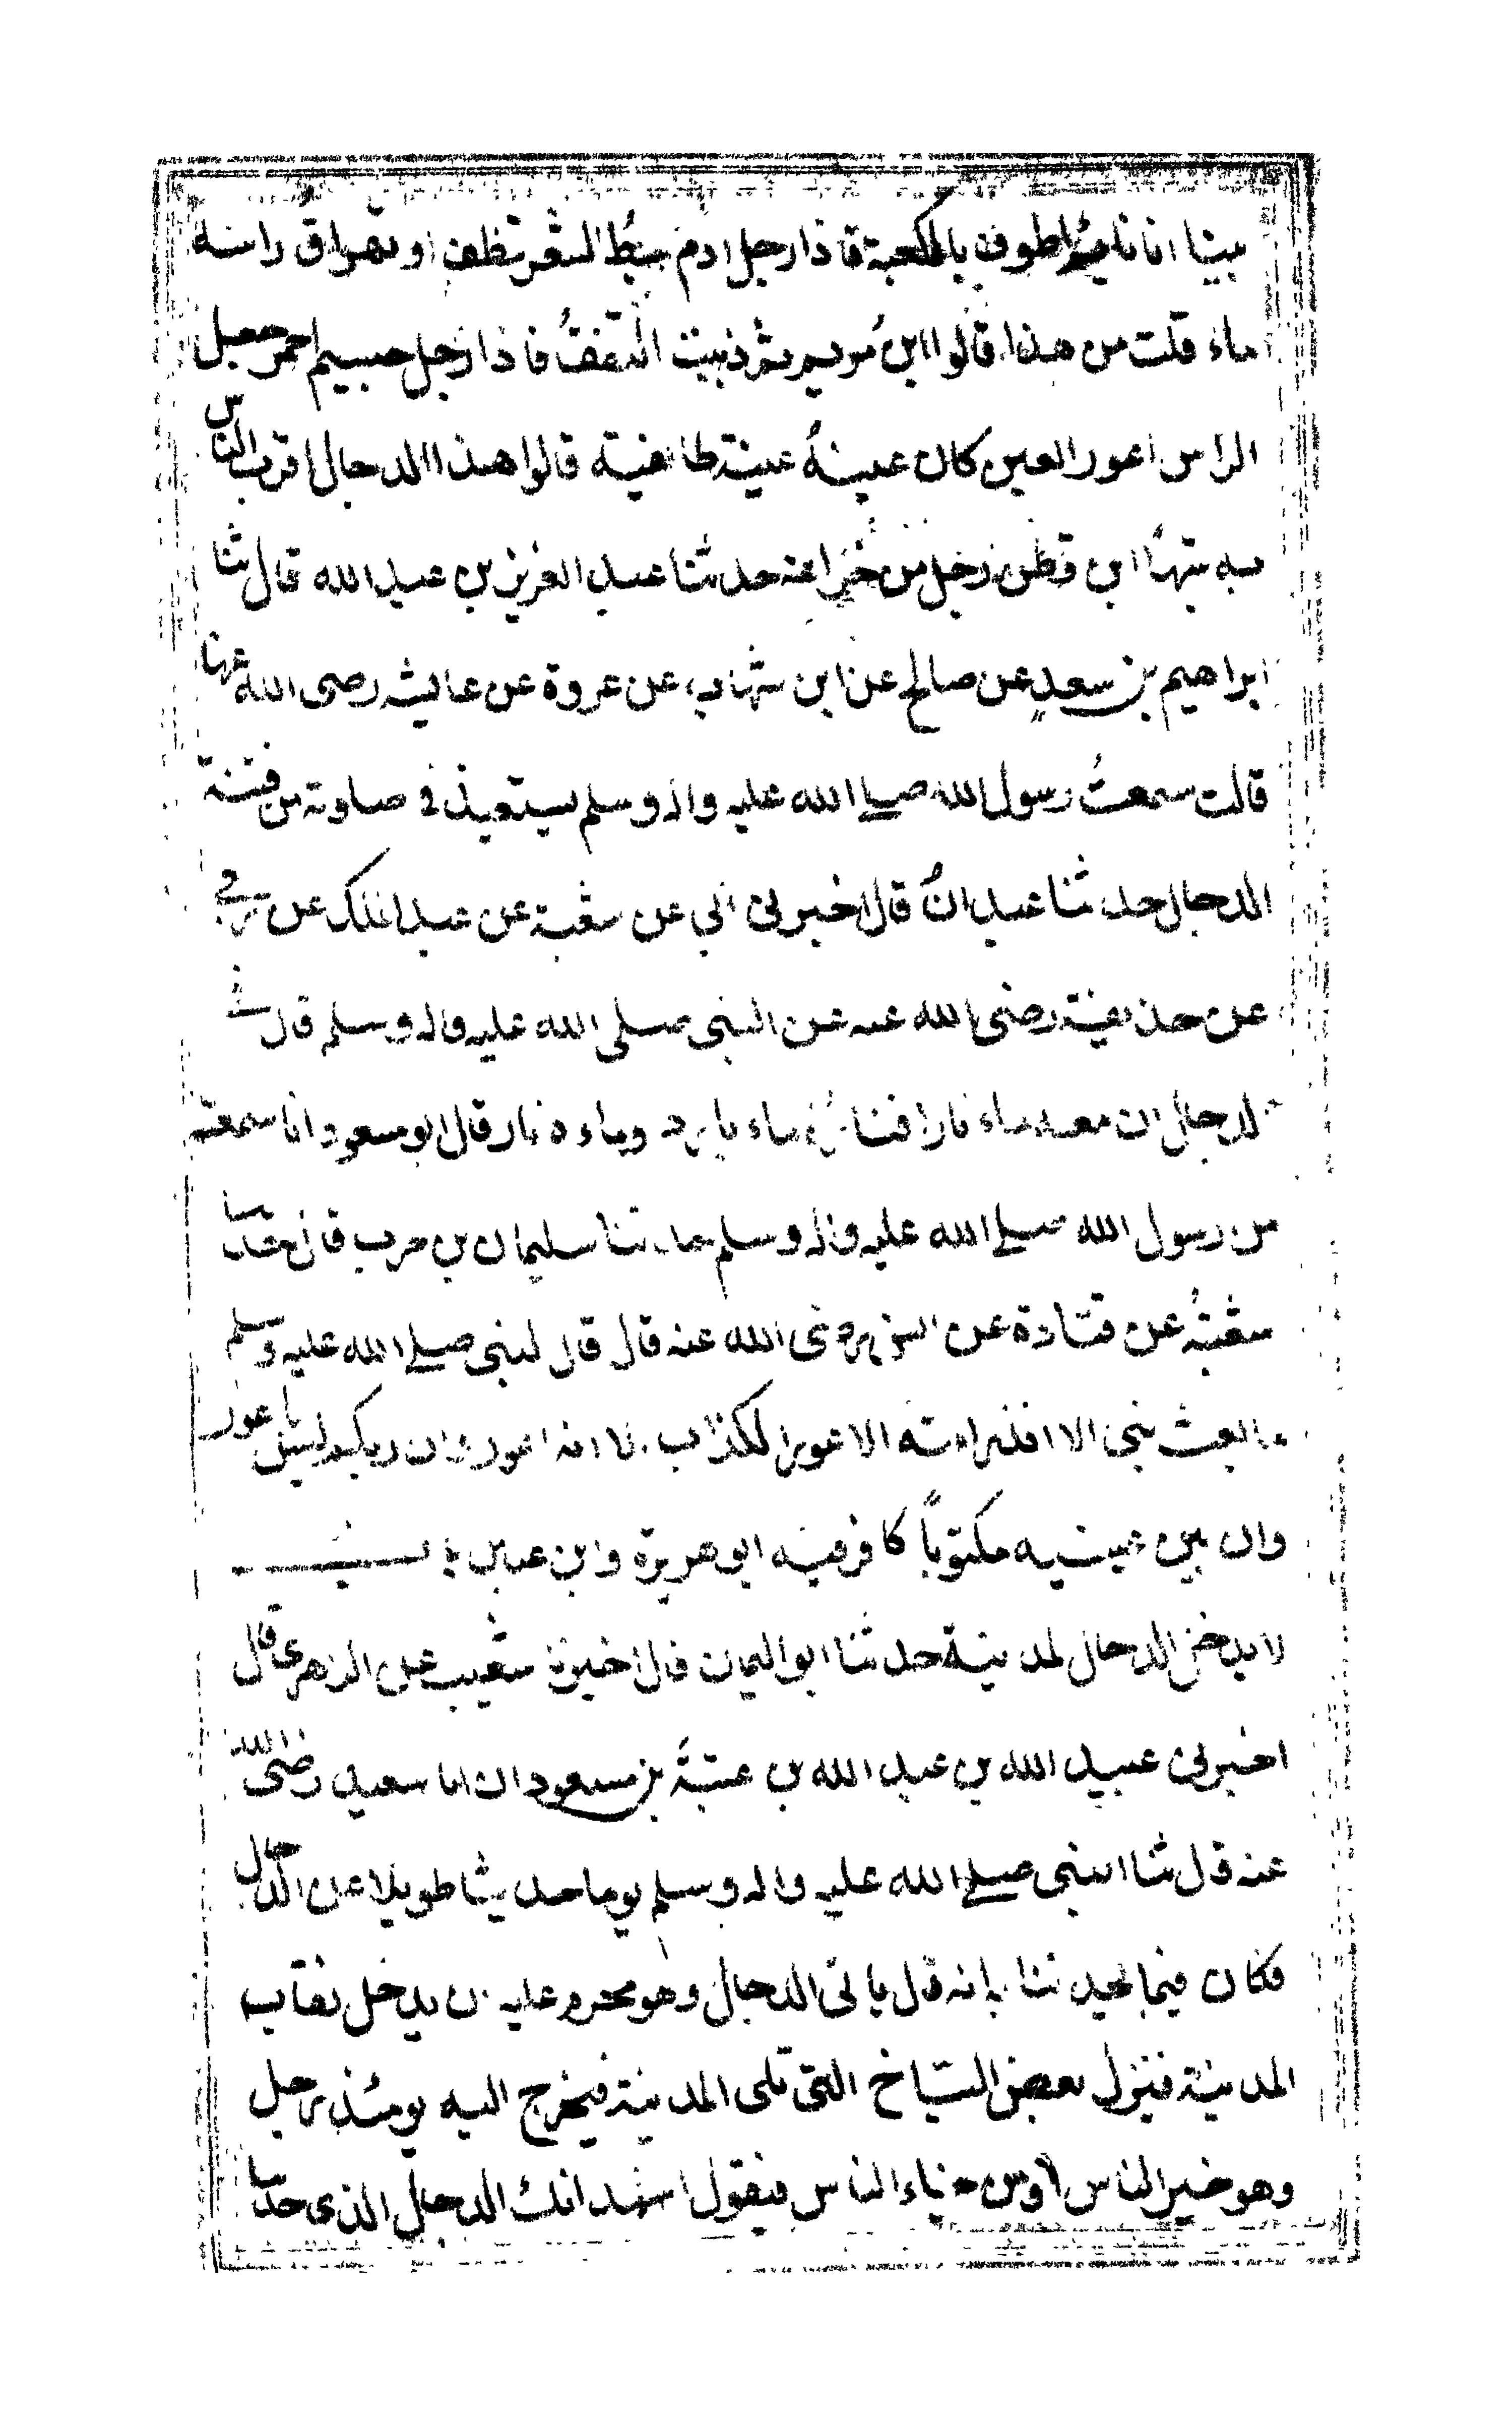 بينا انا نائم اطوف بالكعبة فاذا رجل ادم سبط الشعر ينطف او يهراق راسه
ماء قلت من هذا قالوا ابن مريم ثم ذهبت التفت فاذا رجل جسيم احمر جعد
الراس اعور العين كان عينه عنبة طافية قالوا هذا الدجال اقرب الناس
به شبها ابن قطن رجل من خزاعة حدثنا عبد العزيز بن عبد الله قال ثنا
ابراهيم بن سعد عن صالح عن ابن شهاب عن عروة عن عايشه رضى الله عنها
قالت سمعت رسول الله صلى الله عليه واله وسلم يستعيذ في صلوته من فتنة
الدجال حدثنا عبدان قال اخبرني ابي عن شعبة عن عبد الملك عن ربعي
عن حذيفة رضى الله عنه عن النبى صلى الله عليه واله وسلم قال في
الدجال ان معه ماء نارا فناره ماء بارد وماءه نار قال ابو مسعود انا سمعته
من رسول الله صلى الله عليه واله وسلم حدثنا سليمان بن حرب قال حدثنا
شعبة عن قتادة عن انس رضى الله عنه قال قال النبى صلى الله عليه وسلم
ما بعث نبى الا انذر امته الاعور الكذاب الا انه اعور وان ربكم ليس باعور
وان بين عينيه مكتوباً كافر فيه ابو هريرة وابن عباس باب
لا يدخل الدجال المدينة حدثنا ابو اليمان قال اخبرنا شعيب عن الزهرى قال
اخبرنى عبيد الله بن عبد الله بن عتبة بن مسعود ان ابا سعيد رضى الله
عنه قال ثنا النبى صلى الله عليه واله وسلم يوما حديثا طويلا عن الدجال
فكان فيما يحدثنا به انه قال ياتى الدجال وهو محرم عليه ان يدخل نقاب
المدينة فينزل بعض السباخ التى تلى المدينة فيخرج اليه يومئذ رجل
وهو خير الناس او من خيار الناس فيقول اشهد انك الدجال الذى حدثنا